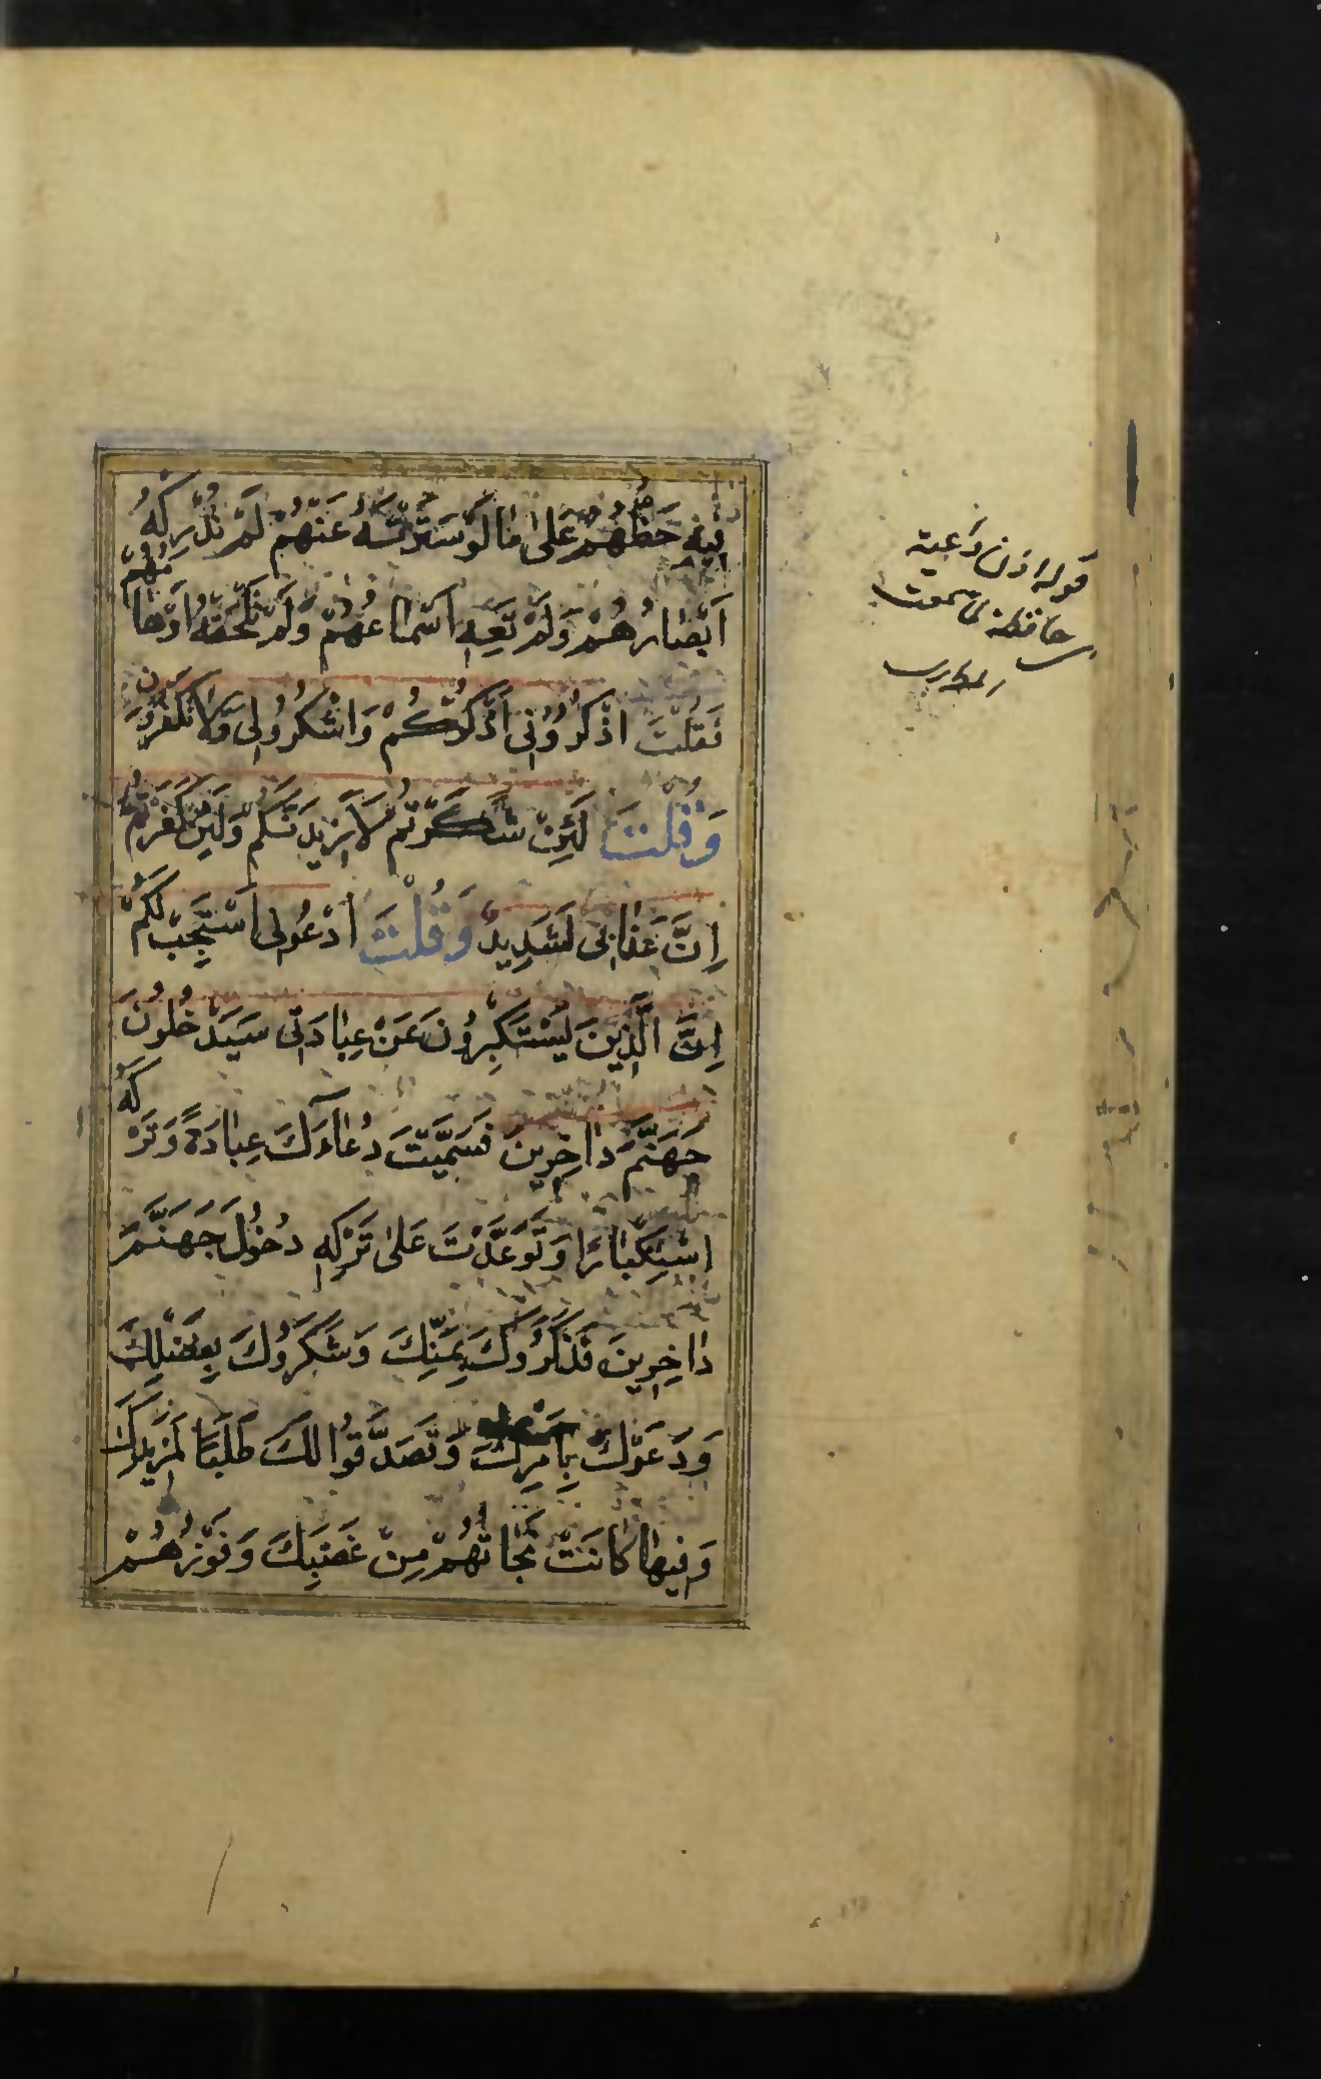 فِيهِ حَظُّهُمْ عَلىٰ مٰا لَوْ سَتَرْتَهُ عَنْهُمْ لَمْ تُدْرِكْهُ
اَبْصٰارُهُمْ وَلَمْ تَعِهِ اَسْمٰاعُهُمْ وَلَمْ تَلْحَقْهُ اَوْهٰامُهُمْ
فَقُلْتَ اذْكُرُوُنِي اَذْكُرْكُمْ وَاشْكُرُوا لِي وَلاٰ تَكْفُرُونِ
وَقُلْتَ لَئِنْ شَكَرْتُمْ لَاَزِيدَنَّكُمْ وَلَئِنْ كَفَرْتُمْ
اِنَّ عَذٰابِي لَشَدِيدٌ وَقُلْتَ ادْعُونِي اَسْتَجِبْ لَكُمْ
اِنَّ الَّذِينَ يَسْتَكْبِرُونَ عَنْ عِبٰادَتِي سَيَدْخُلُونَ
جَهَنَّمَ دٰاخِرِينَ فَسَمَّيْتَ دُعٰاءَكَ عِبٰادَةً وَتَرْكَهُ
اسْتِكْبٰارًا وَتَوَعَّدْتَ عَلىٰ تَرْكِهِ دُخُولَ جَهَنَّمَ
دٰاخِرِينَ فَذَكَرُوكَ بِمَنِّكَ وَشَكَرُوكَ بِفَضْلِكَ
وَدَعَوْكَ بِاَمْرِكَ وَتَصَدَّقُوا لَكَ طَلَبًا لِمَزِيدِكَ
وَفِيهٰا كٰانَتْ نَجٰاتُهُمْ مِنْ غَضَبِكَ وَفَوْزُهُمْ
قوله اذن داعية
حافظة لما سمعت